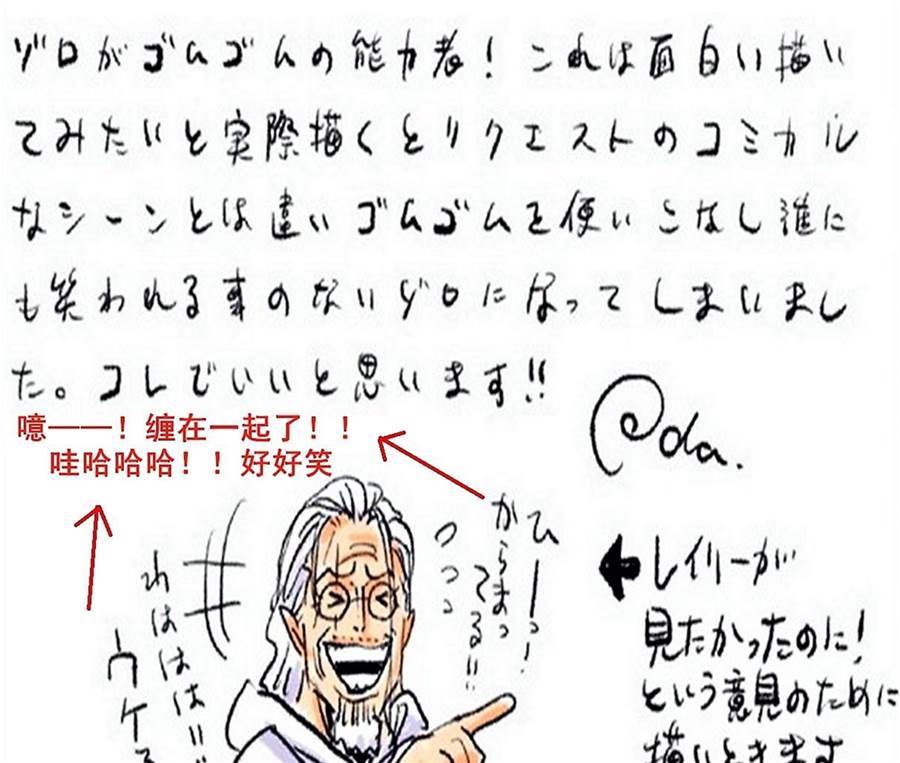 ゾロがゴムゴムの能力者！これは面白い描い
てみたいと実際描くとリクエストのコミカル
なシーンとは違いゴムゴムを使いこなし誰に
も笑われる事のないゾロになってしまいまし
た。コレでいいと思います!!
Oda.
噫——！缠在一起了！！
哇哈哈哈！！好好笑
ひーっ！
からまっ
てる!!
つっっ
わははは!!
ウケる
←レイリーが
見たかったのに！
という意見のために
描いときます